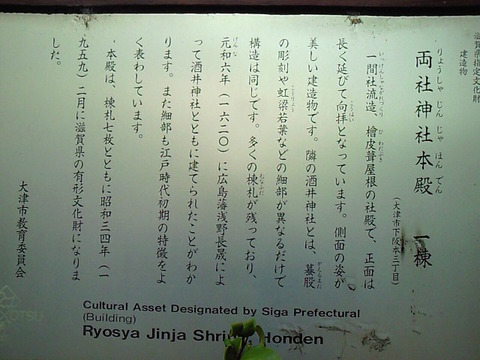 滋賀県指定文化財
建造物
両社神社本殿 一棟
りょうしゃ じん じゃ ほん でん
(大津市下阪本三丁目)
一間社流造、檜皮葺屋根の社殿で、正面は
長く延びて向拝となっています。側面の姿が
美しい建造物です。隣の酒井神社とは、蟇股
の彫刻や虹梁若葉などの細部が異なるだけで
構造は同じです。多くの棟札が残っており、
元和六年(一六二〇)に広島藩浅野長晟によ
って酒井神社とともに建てられたことがわか
ります。また細部も江戸時代初期の特徴をよ
く表わしています。
本殿は、棟札七枚とともに昭和三四年(一
九五九)二月に滋賀県の有形文化財になりま
した。
大津市教育委員会
Cultural Asset Designated by Siga Prefectural
(Building)
Ryosya Jinja Honden
OTSU